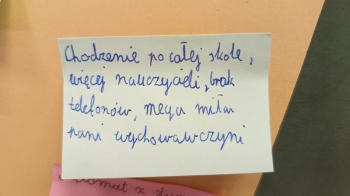 Chodzenie po całej skole,
więcej nauczycieli, brak
telefonów, mega miła
pani wychowawczyni